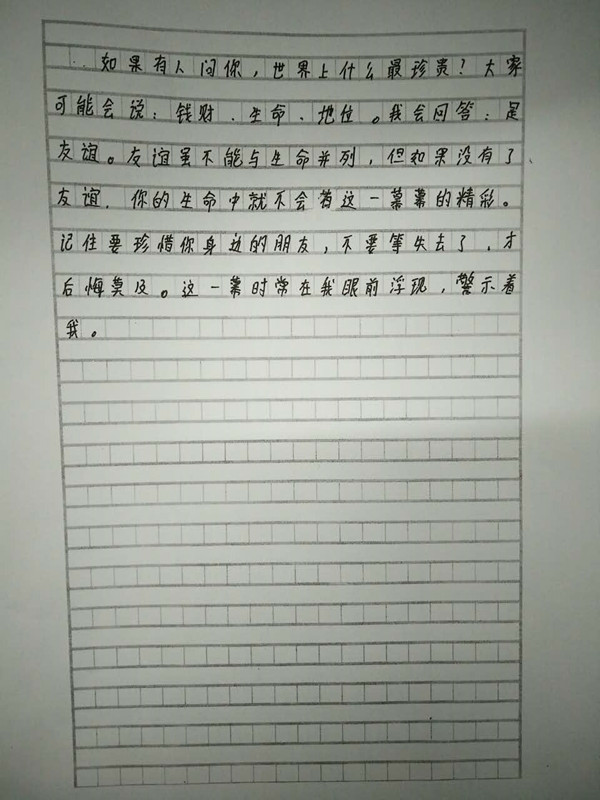 如果有人问你，世界上什么最珍贵？大家
可能会说：钱财、生命、地位。我会回答：是
友谊。友谊虽不能与生命并列，但如果没有了
友谊，你的生命中就不会有这一幕幕的精彩。
记住要珍惜你身边的朋友，不要等失去了，才
后悔莫及。这一幕时常在我眼前浮现，警示着
我。